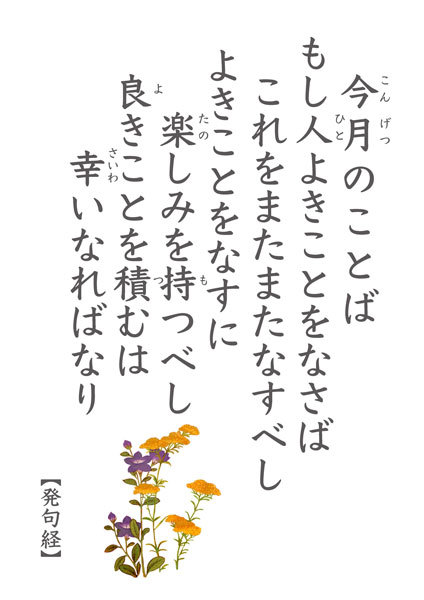 今月のことば
もし人よきことをなさば
これをまたまたなすべし
よきことをなすに
楽しみを持つべし
良きことを積むは
幸いなればなり
【発句経】